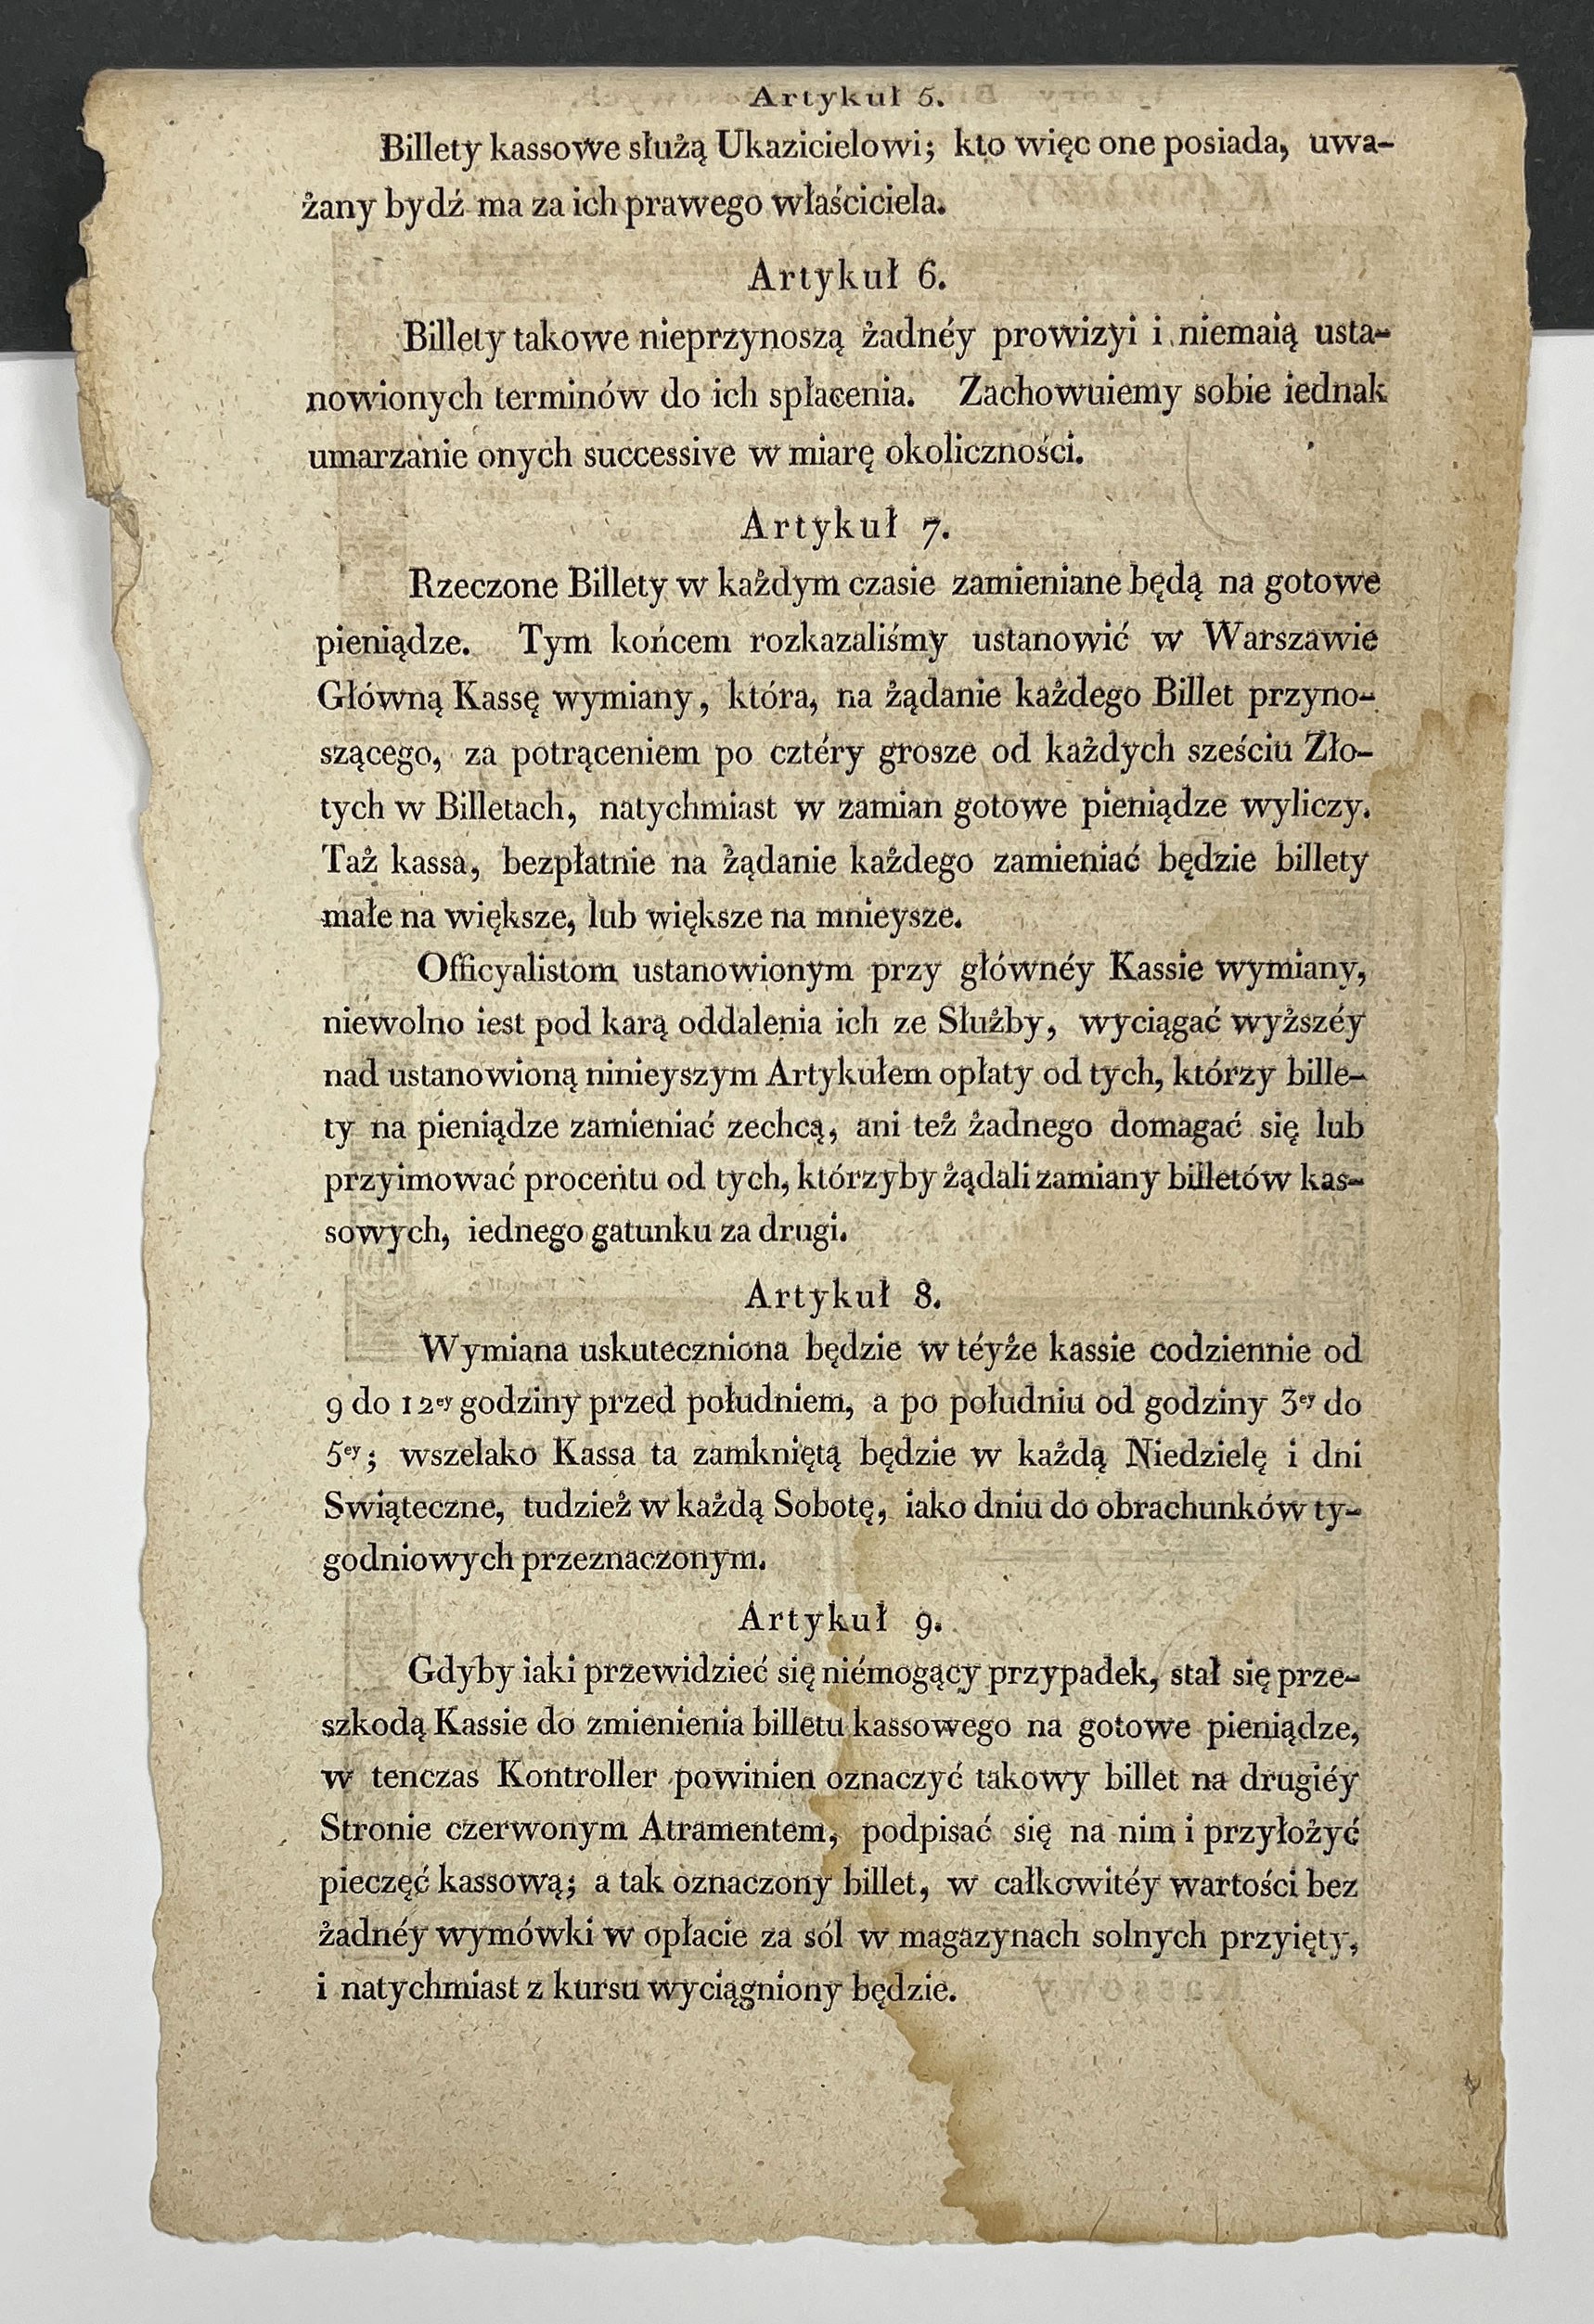 Artykuł 5.
Billety kassowe służą Ukazicielowi; kto więc one posiada, uwa-
żany bydź ma za ich prawego właściciela.
Artykuł 6.
Billety takowe nieprzynoszą żadnéy prowizyi i niemaią usta-
nowionych terminów do ich spłacenia. Zachowuiemy sobie iednak
umarzanie onych successive w miarę okoliczności.
Artykuł 7.
Rzeczone Billety w każdym czasie zamieniane będą na gotowe
pieniądze. Tym końcem rozkazaliśmy ustanowić w Warszawie
Główną Kassę wymiany, która, na żądanie każdego Billet przyno-
szącego, za potrąceniem po cztéry grosze od każdych sześciu Zło-
tych w Billetach, natychmiast w zamian gotowe pieniądze wyliczy.
Taż kassa, bezpłatnie na żądanie każdego zamieniać będzie billety
małe na większe, lub większe na mnieysze.
Officyalistom ustanowionym przy głównéy Kassie wymiany,
niewolno iest pod karą oddalenia ich ze Służby, wyciągać wyższéy
nad ustanowioną ninieyszym Artykułem opłaty od tych, którzy bille-
ty na pieniądze zamieniać zechcą, ani też żadnego domagać się lub
przyimować procentu od tych, którzyby żądali zamiany billetów kas-
sowych, iednego gatunku za drugi.
Artykuł 8.
Wymiana uskuteczniona będzie w téyże kassie codziennie od
9 do 12ey godziny przed południem, a po południu od godziny 3ey do
5ey; wszelako Kassa ta zamkniętą będzie w każdą Niedzielę i dni
Swiąteczne, tudzież w każdą Sobotę, iako dniu do obrachunków ty-
godniowych przeznaczonym.
Artykuł 9.
Gdyby iaki przewidzieć się niémogący przypadek, stał się prze-
szkodą Kassie do zmienienia billetu kassowego na gotowe pieniądze,
w tenczas Kontroller powinien oznaczyć takowy billet na drugiéy
Stronie czerwonym Atramentem, podpisać się na nim i przyłożyć
pieczęć kassową; a tak oznaczony billet, w całkowitéy wartości bez
żadnéy wymówki w opłacie za sól w magazynach solnych przyięty,
i natychmiast z kursu wyciągniony będzie.